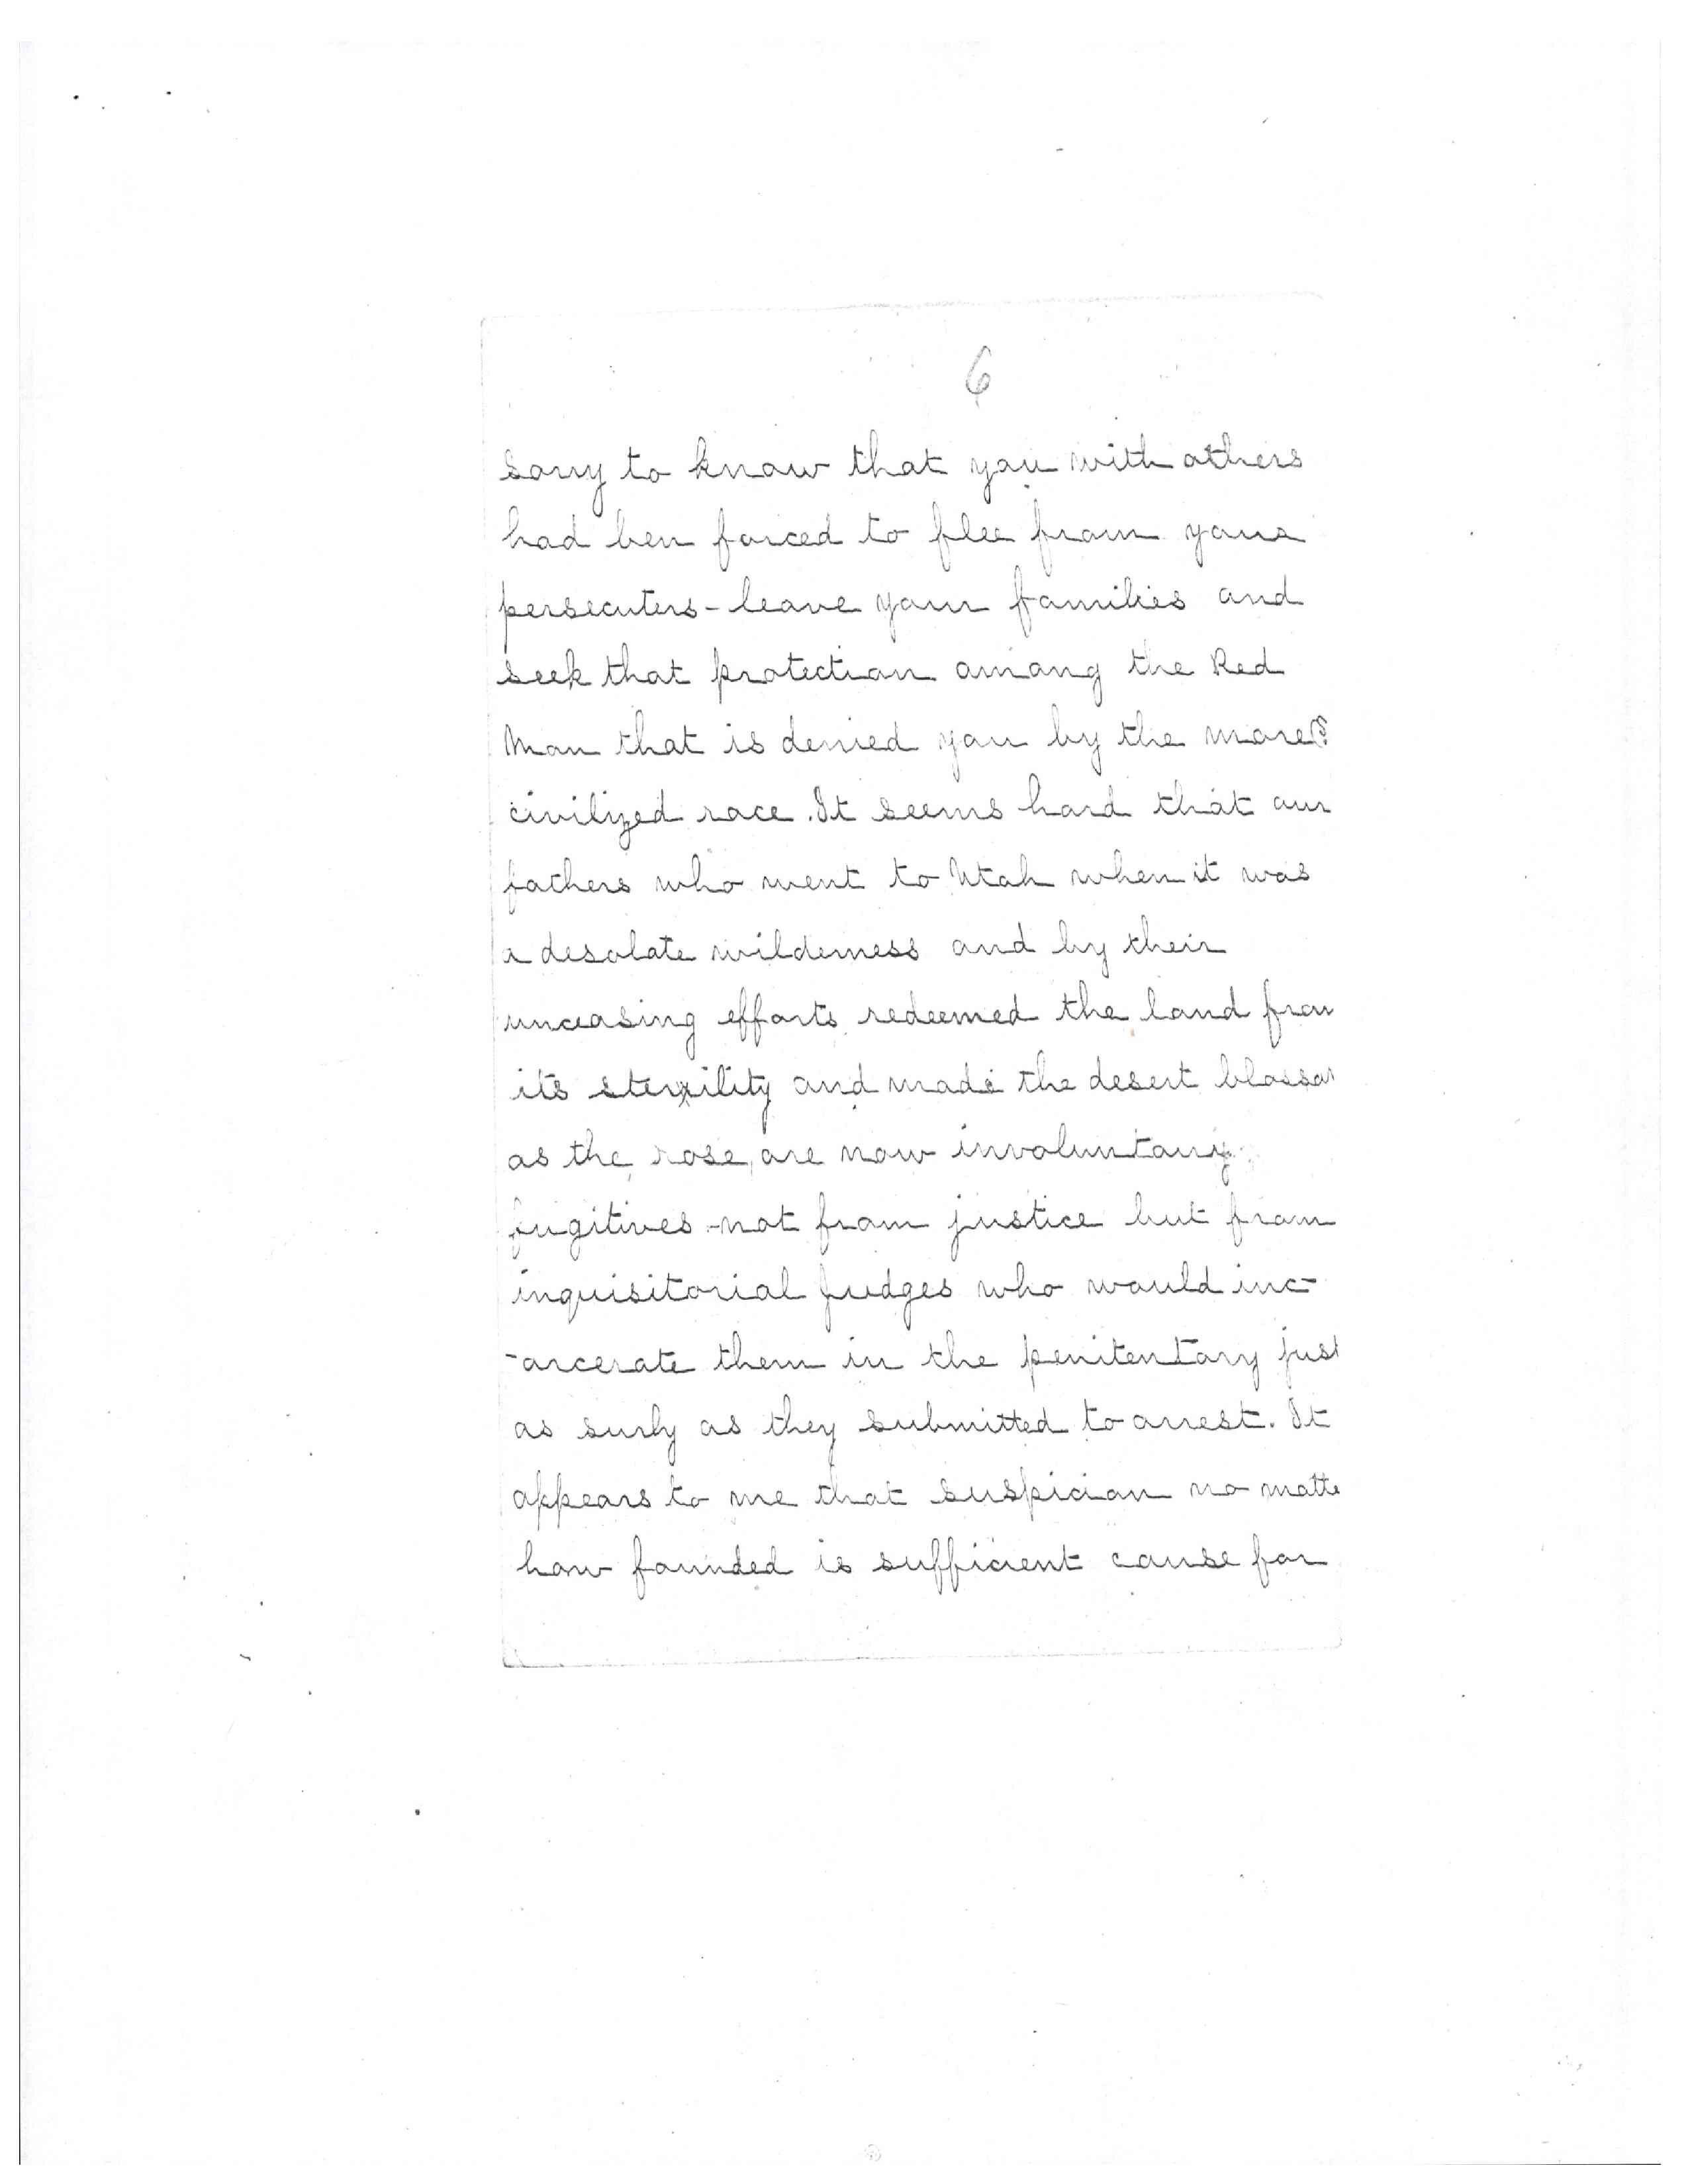 6
sorry to know that you with others
had ben forced to flee from your
persecuters - leave your families and
seek that protection among the Red
Man that is denied you by the more(?)
civilized race. It seems hard that our
fathers who went to Utah when it was
a desolate wilderness and by their
unceasing efforts redeemed the land from
its sterility and made the desert blossom
as the rose, are now involuntary
fugitives - not from justice but from
inquisitorial judges who would inc-
-arcerate them in the penitentary just
as surly as they submitted to arrest. It
appears to me that suspician no matte
how founded is sufficient cause for